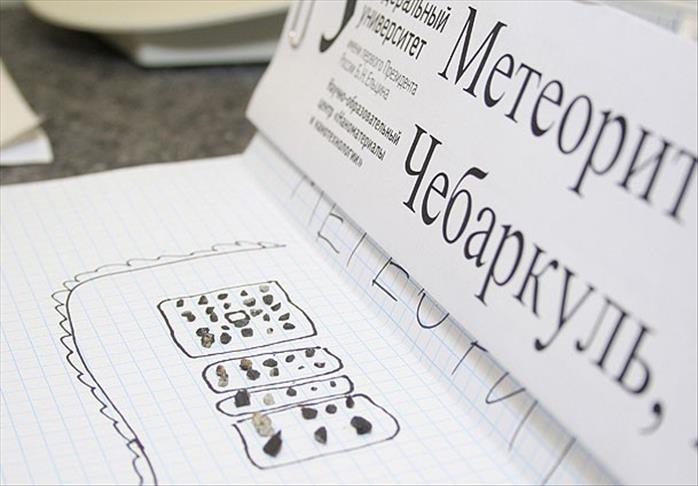 федеральный
университет
имени первого Президента
России Б.Н.Ельцина
Научно-образовательный
центр «Наноматериалы
и нанотехнологии»
Метеорит
Чебаркуль,